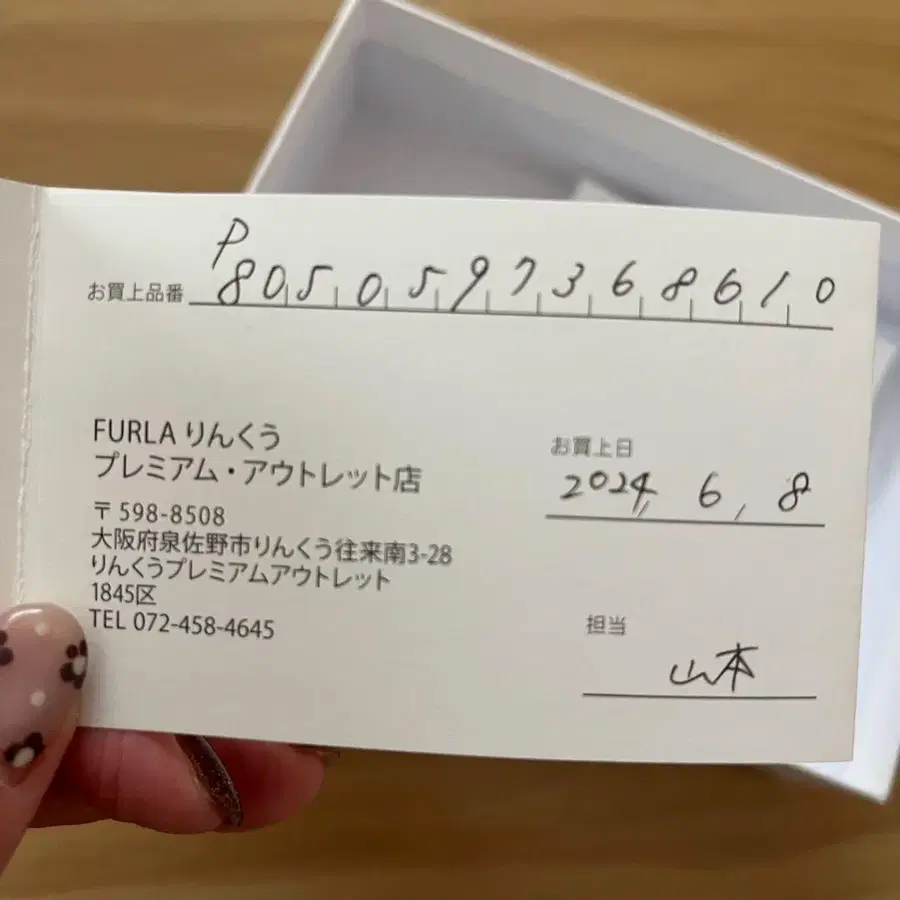 P
お買上品番 8050597368610
FURLA りんくう
プレミアム・アウトレット店
〒598-8508
大阪府泉佐野市りんくう往来南3-28
りんくうプレミアムアウトレット
1845区
TEL 072-458-4645
お買上日
2024, 6, 8
担当
山本